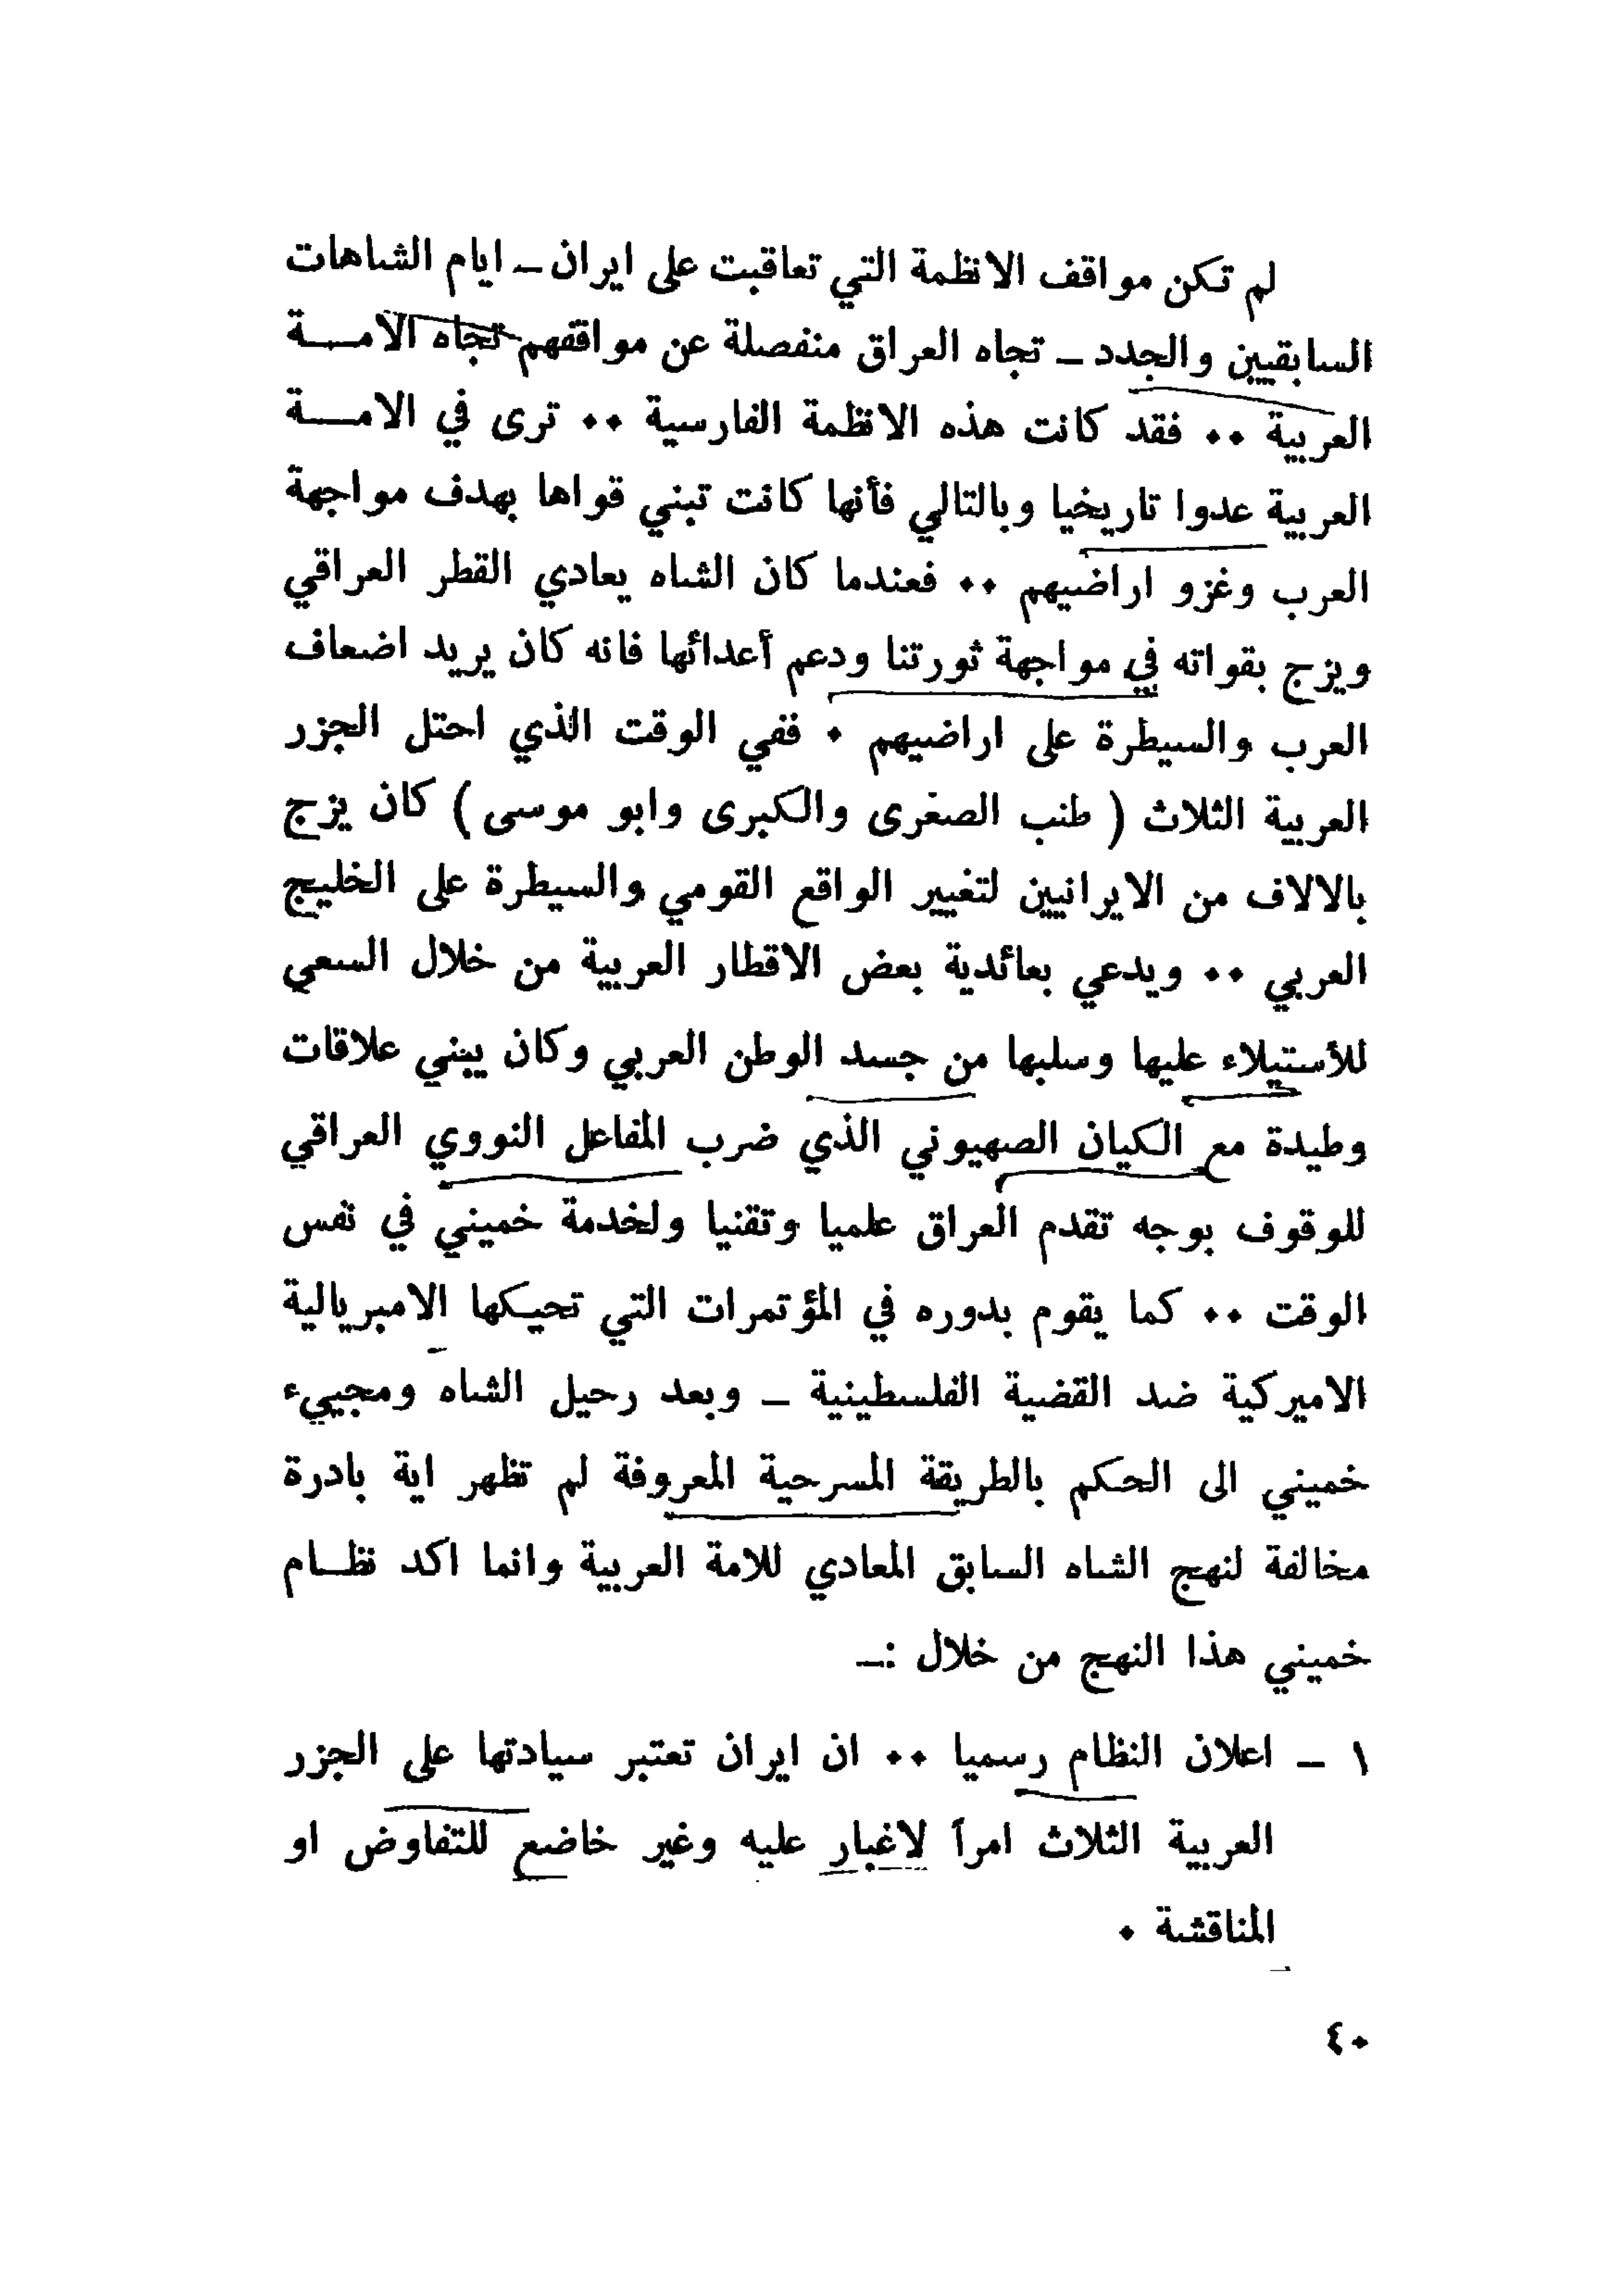 لم تكن مواقف الانظمة التي تعاقبت على ايران ـ ايام الشاهات
السابقيين والجدد ـ تجاه العراق منفصلة عن مواقفهم تجاه الامـــة
العربية ٠٠ فقد كانت هذه الانظمة الفارسية ٠٠ ترى في الامـــة
العربية عدوا تاريخيا وبالتالي فأنها كانت تبني قواها بهدف مواجهة
العرب وغزو اراضيهم ٠٠ فعندما كان الشاه يعادي القطر العراقي
ويزج بقواته في مواجهة ثورتنا ودعم أعدائها فانه كان يريد اضعاف
العرب والسيطرة على اراضيهم ٠ ففي الوقت الذي احتل الجزر
العربية الثلاث ( طنب الصغرى والكبرى وابو موسى ) كان يزج
بالالاف من الايرانيين لتغيير الواقع القومي والسيطرة على الخليج
العربي ٠٠ ويدعي بعائدية بعض الاقطار العربية من خلال السعي
للأستيلاء عليها وسلبها من جسد الوطن العربي وكان يبني علاقات
وطيدة مع الكيان الصهيوني الذي ضرب المفاعل النووي العراقي
للوقوف بوجه تقدم العراق علميا وتقنيا ولخدمة خميني في نفس
الوقت ٠٠ كما يقوم بدوره في المؤتمرات التي تحيكها الامبريالية
الاميركية ضد القضية الفلسطينية ـ وبعد رحيل الشاه ومجييء
خميني الى الحكم بالطريقة المسرحية المعروفة لم تظهر اية بادرة
مخالفة لنهج الشاه السابق المعادي للامة العربية وانما اكد نظــام
خميني هذا النهج من خلال :ـ
١ ـ اعلان النظام رسميا ٠٠ ان ايران تعتبر سيادتها على الجزر
العربية الثلاث امراً لاغبار عليه وغير خاضع للتفاوض او
المناقشة ٠
٤٠